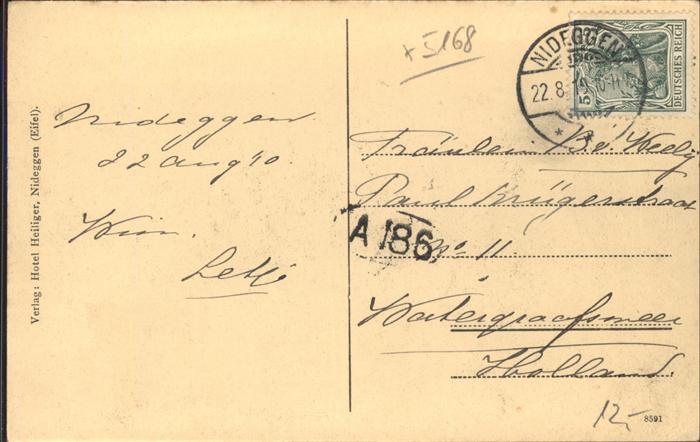 Verlag: Hotel Heiliger, Nideggen (Eifel).
Nideggen
22 Aug '10.
Wim.
+5168
NIDEGGEN
22.8.
DEUTSCHES REICH
5
Fräulein Bé
Paul Krügerstraat
No 11.
A 186
Watergraafsmeer
Holland.
12,-
8591